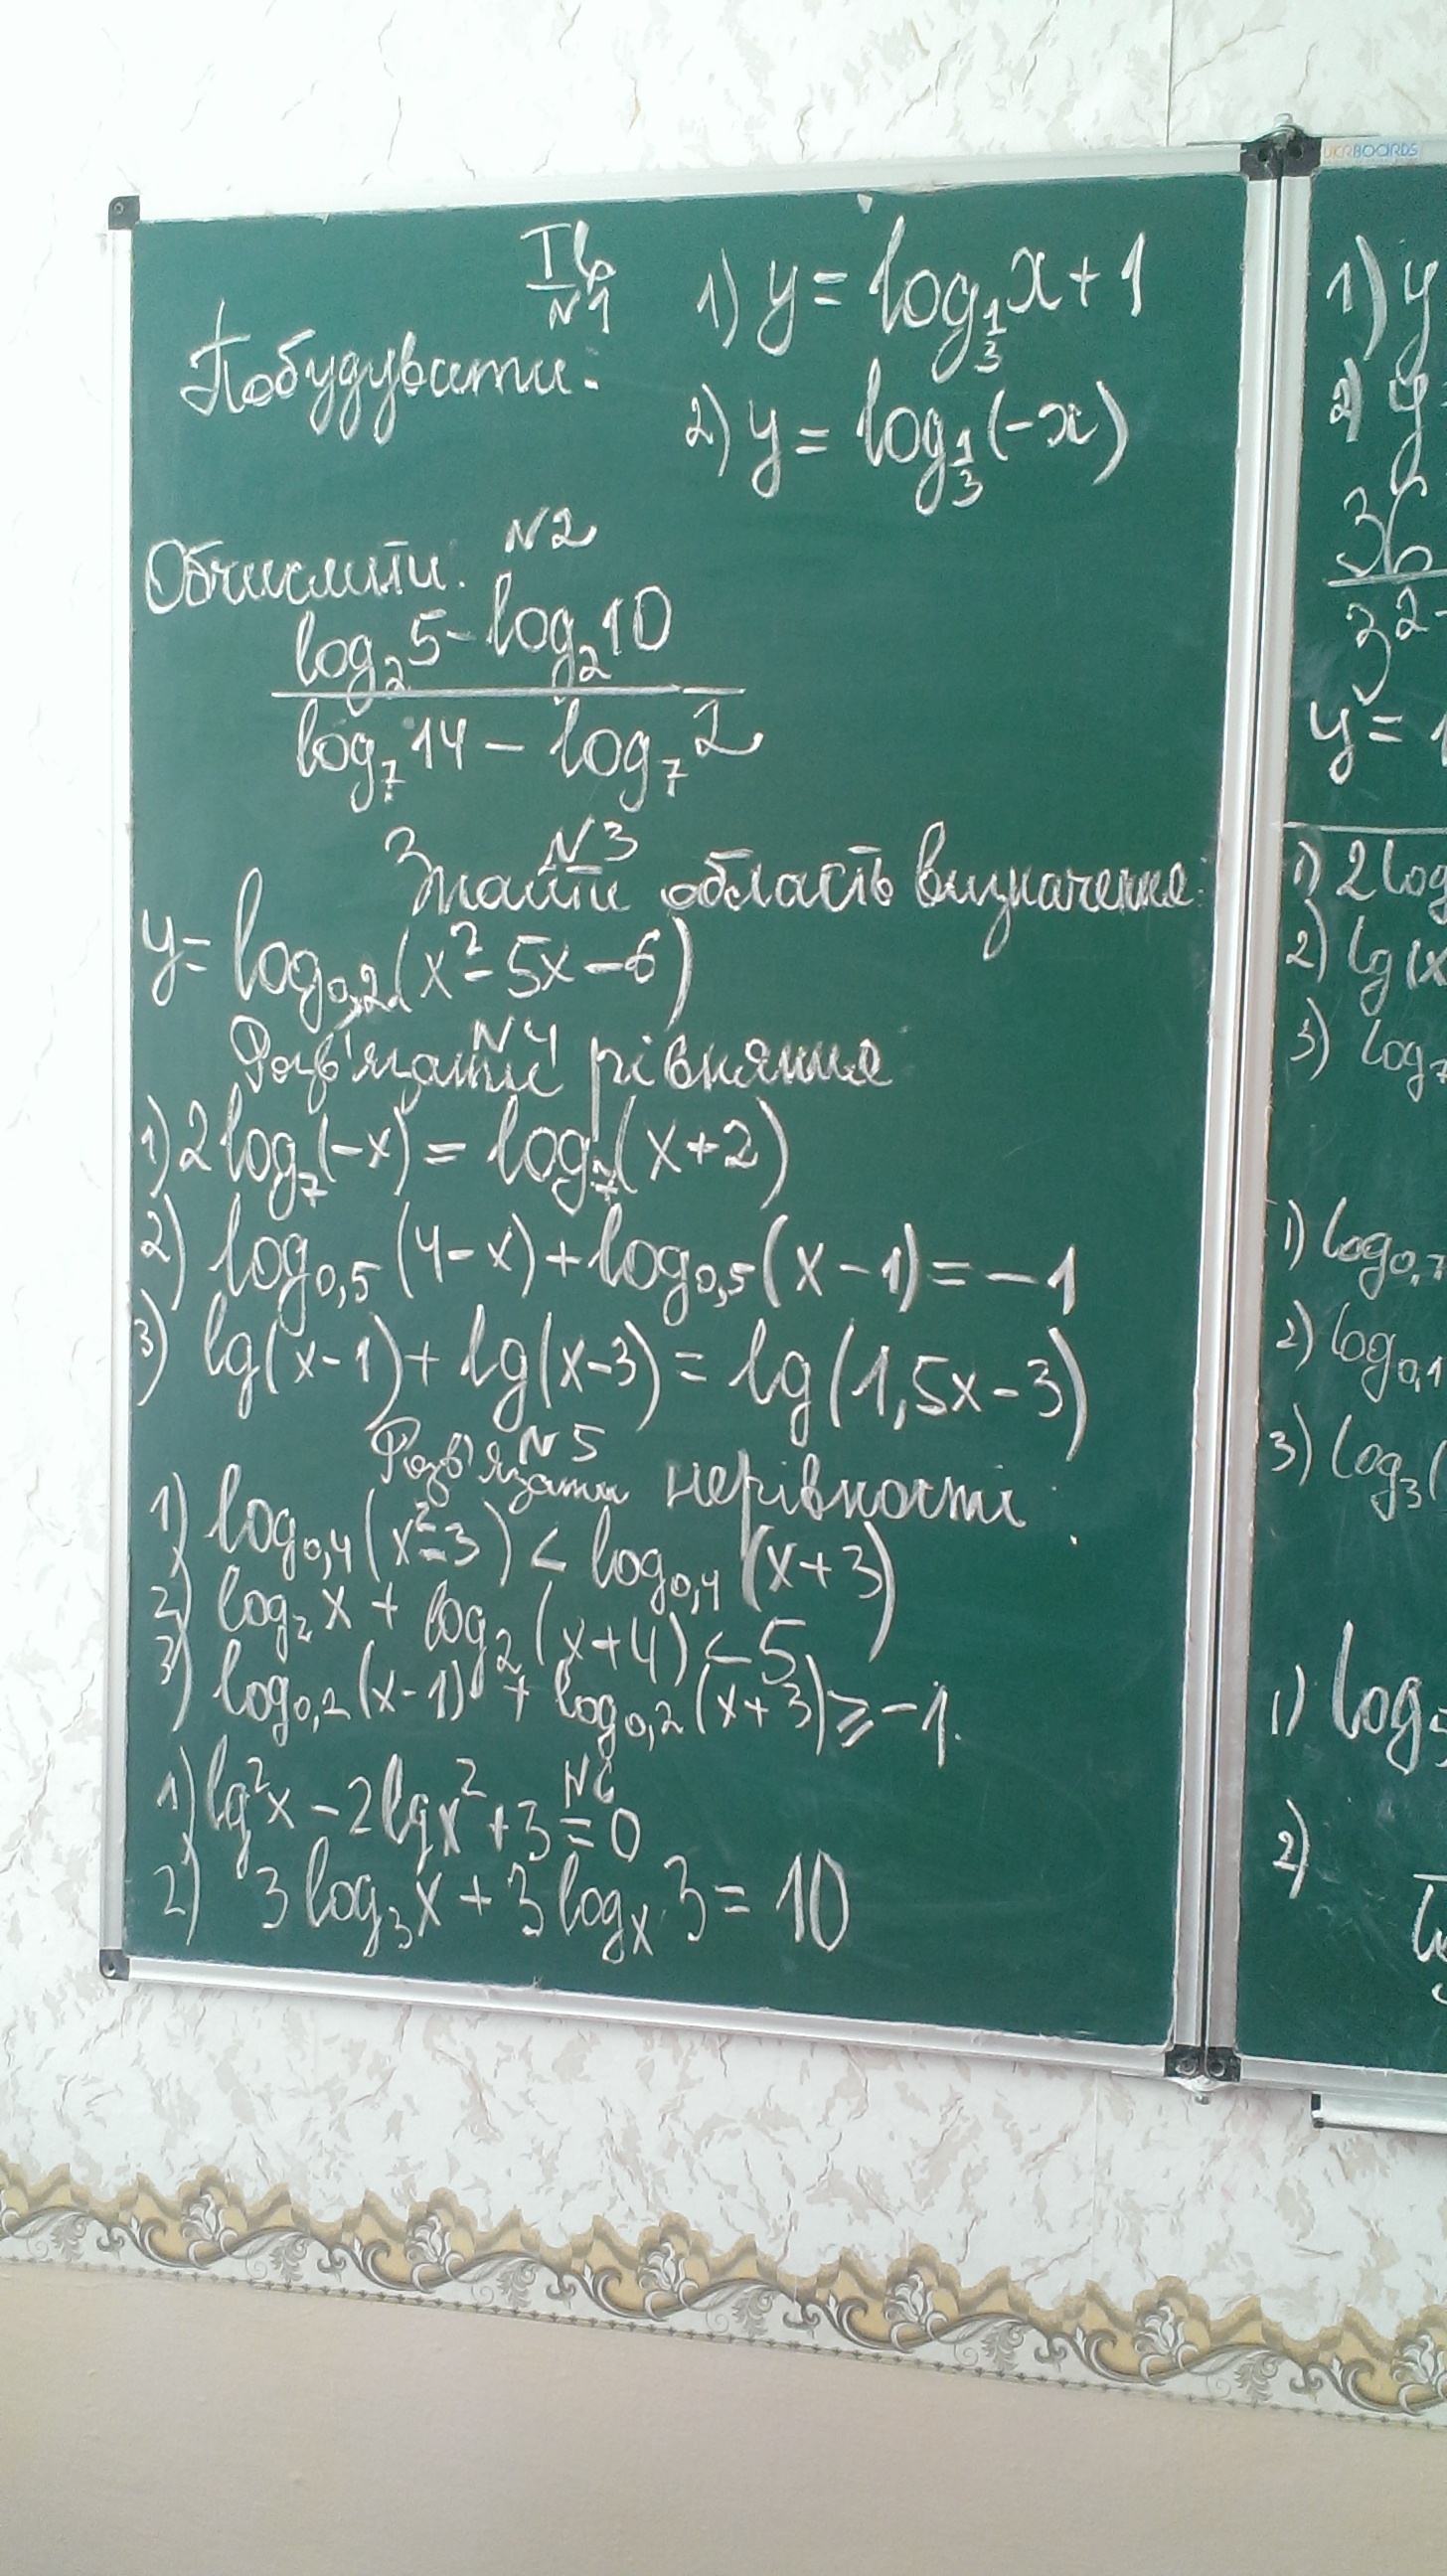 UKRBOARDS
I в
N1
Побудувати:
1) y = log_{1/3} x + 1
2) y = log_{1/3} (-x)
N2
Обчислити:
log₂ 5 - log₂ 10
log₇ 14 - log₇ 2
N3
Знайти область визначення:
y = log_{0,2} (x² - 5x - 6)
N4
Розв'язати рівняння
1) 2 log₇ (-x) = log₇ (x + 2)
2) log_{0,5} (4 - x) + log_{0,5} (x - 1) = -1
3) lg (x - 1) + lg (x - 3) = lg (1,5x - 3)
N5
Розв'язати нерівності:
1) log_{0,4} (x² - 3) < log_{0,4} (x + 3)
2) log₂ x + log₂ (x + 4) < 5
3) log_{0,2} (x - 1) + log_{0,2} (x + 3) ≥ -1.
N6
1) lg² x - 2 lg x² + 3 = 0
2) 3 log₃ x + 3 log_x 3 = 10
1) y
2) y
36
3² -
y =
1) 2 log
2) lg (x
3) log₇
1) log_{0,7}
2) log_{0,1}
3) log₃ (
1) log
2)